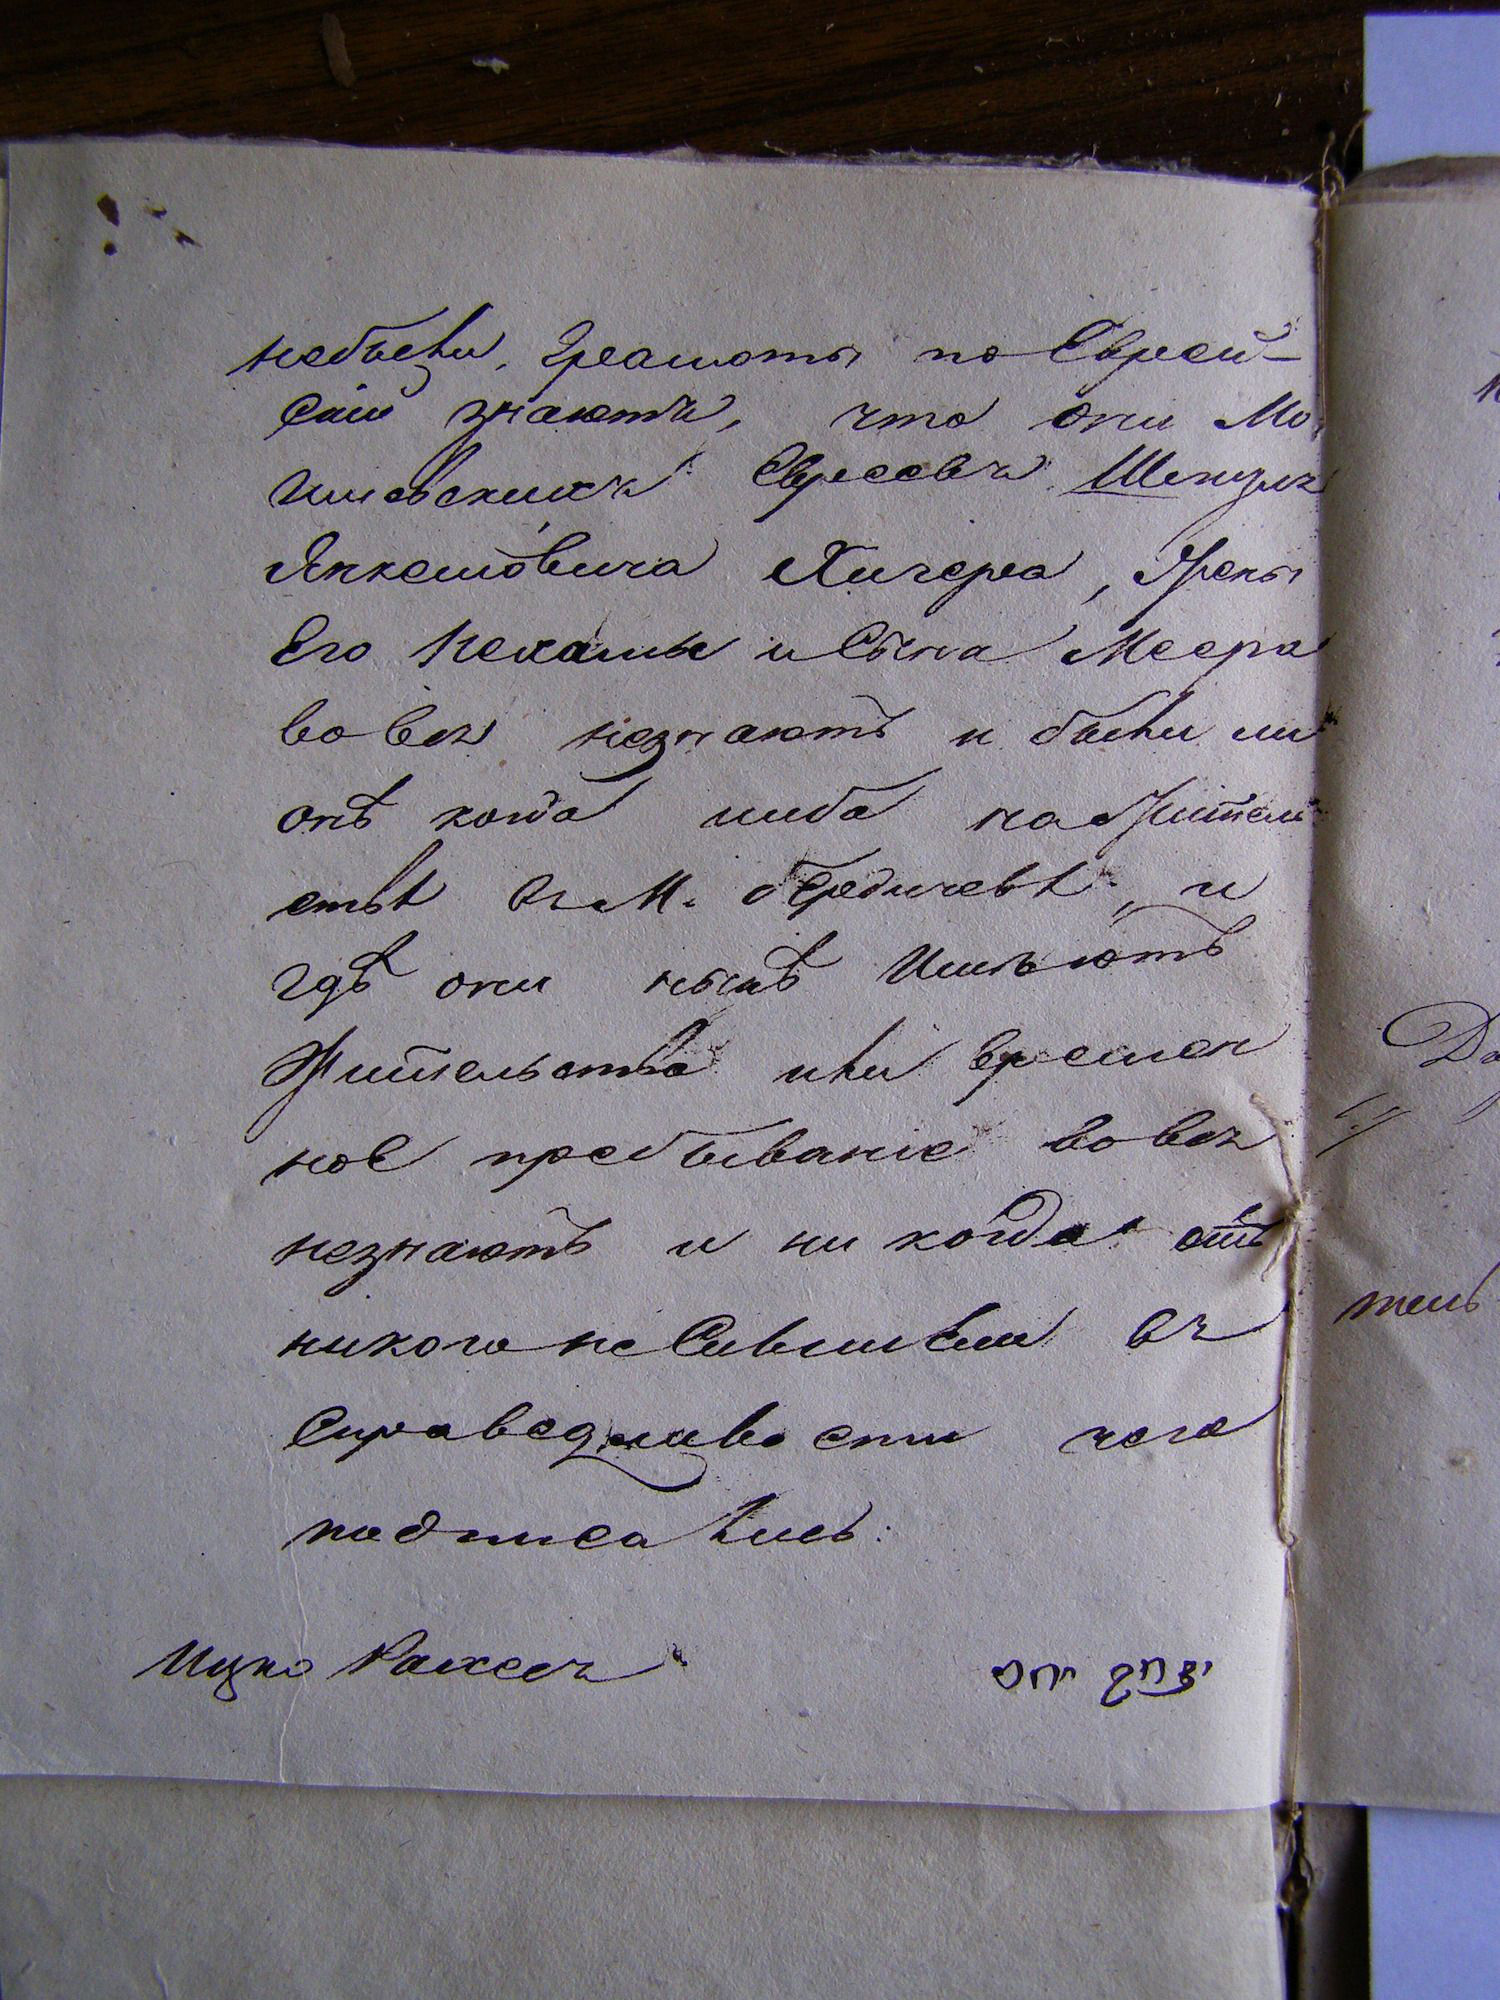 небыли, Грамоты по Еврей-
скіи знаютъ, что они Мо
гилевскихъ Евреевъ Шмуля
Янкелiовича Хигера, Жены
Его Нехамы и Сына Меера
вовсе незнаютъ и были ли
онѣ когда либо на Жытель
ствѣ въ М. Бердичевѣ, и
гдѣ они нынѣ Имѣютъ
Жительство или времен
ное пребываніе вовсе
незнаютъ и ни когда отъ
никого не слышели въ
справедливости чего
подписались:
Ицко
יצחק
Да
тель